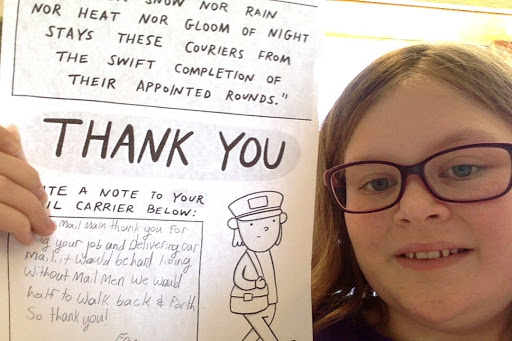 SNOW NOR RAIN
NOR HEAT NOR GLOOM OF NIGHT
STAYS THESE COURIERS FROM
THE SWIFT COMPLETION OF
THEIR APPOINTED ROUNDS."
THANK YOU
ITE A NOTE TO YOUR
IL CARRIER BELOW:
Mail Main thank you for
ing your job and Delivering our
mail. it would be hard living
without Mail Men we would
half to walk back & forth
So thank you!